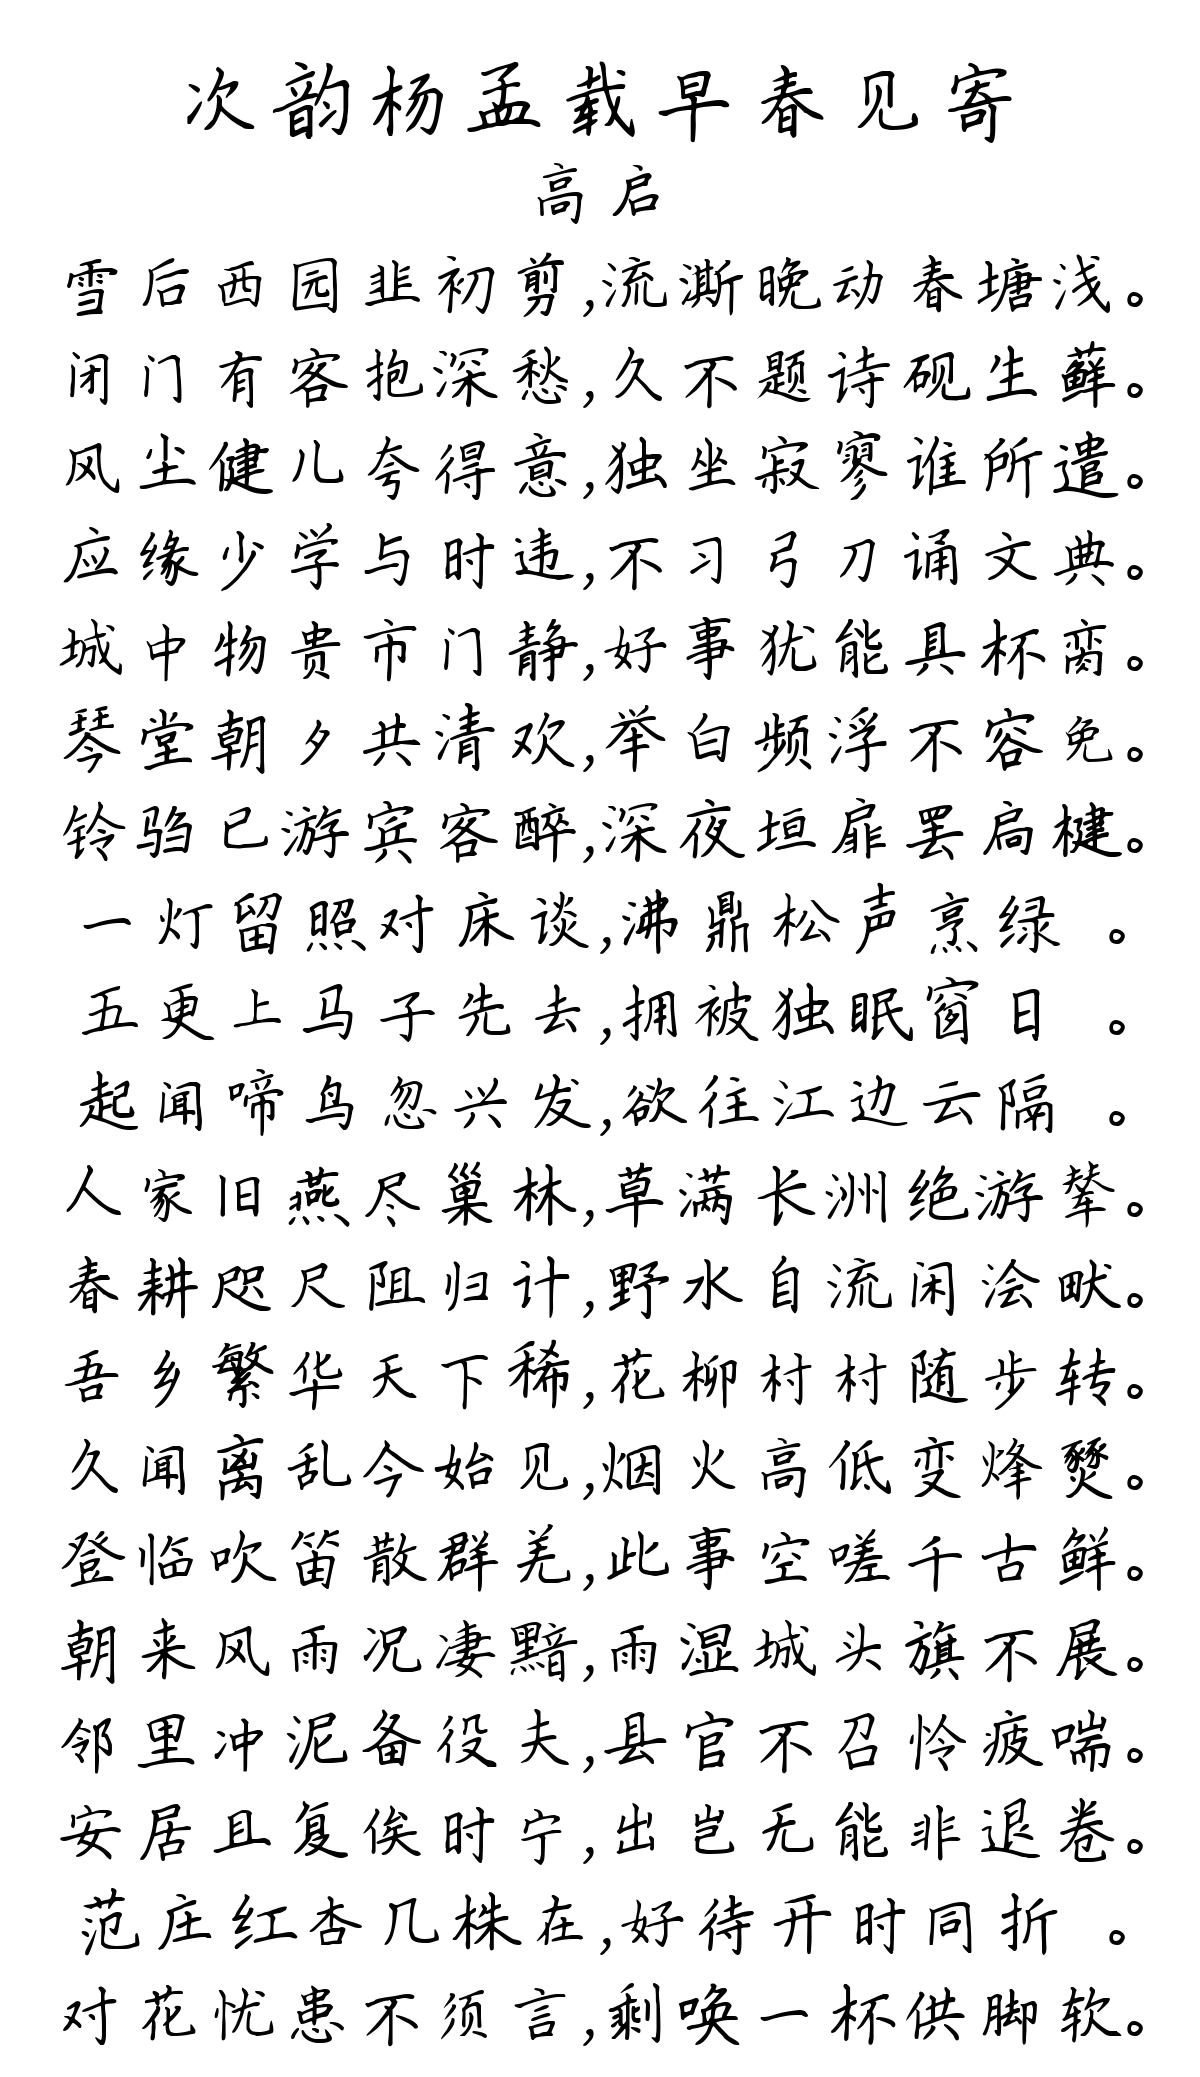 次韵杨孟载早春见寄
高启
雪后西园韭初剪,流澌晚动春塘浅。
闭门有客抱深愁,久不题诗砚生藓。
风尘健儿夸得意,独坐寂寥谁所遣。
应缘少学与时违,不习弓刀诵文典。
城中物贵市门静,好事犹能具杯脔。
琴堂朝夕共清欢,举白频浮不容免。
铃驺已游宾客醉,深夜垣扉罢扃楗。
一灯留照对床谈,沸鼎松声烹绿 。
五更上马子先去,拥被独眠窗日 。
起闻啼鸟忽兴发,欲往江边云隔 。
人家旧燕尽巢林,草满长洲绝游辇。
春耕咫尺阻归计,野水自流闲浍畎。
吾乡繁华天下稀,花柳村村随步转。
久闻离乱今始见,烟火高低变烽燹。
登临吹笛散群羌,此事空嗟千古鲜。
朝来风雨况凄黯,雨湿城头旗不展。
邻里冲泥备役夫,县官不召怜疲喘。
安居且复俟时宁,出岂无能非退卷。
范庄红杏几株在,好待开时同折 。
对花忧患不须言,剩唤一杯供脚软。